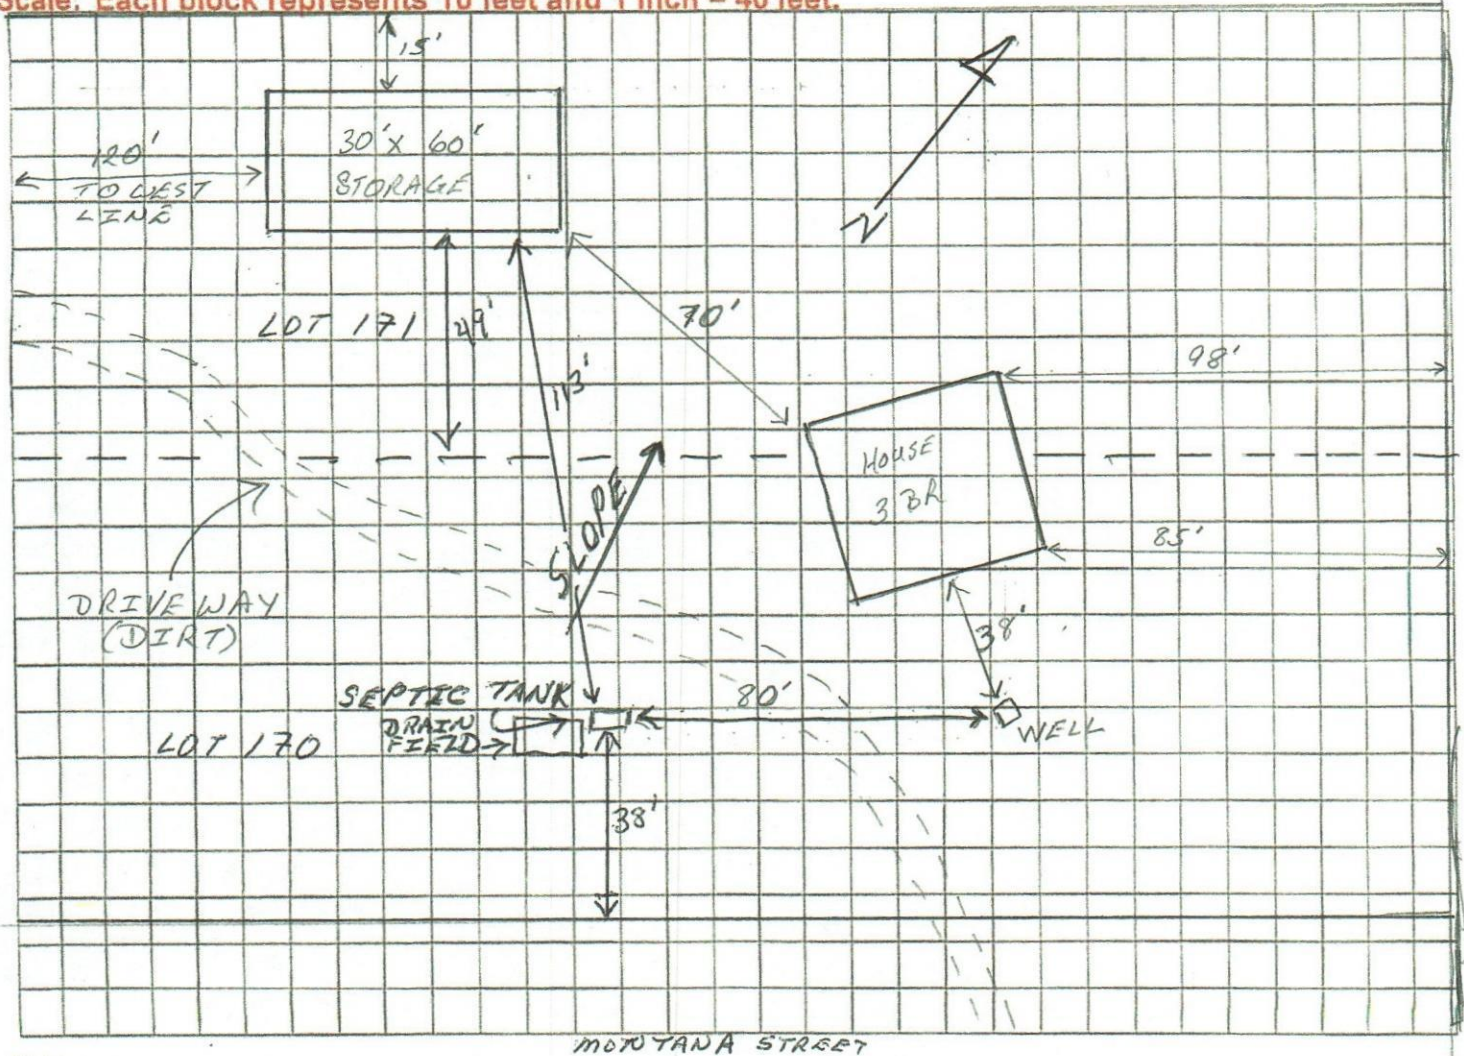 Scale: Each block represents 10 feet and 1 inch = 40 feet.
15'
120'
TO WEST
LINE
30' X 60'
STORAGE
N
LOT 171
49'
113'
70'
98'
HOUSE
3 BR
SLOPE
85'
DRIVEWAY
(DIRT)
38'
SEPTIC TANK
80'
WELL
DRAIN
FIELD
LOT 170
38'
MONTANA STREET